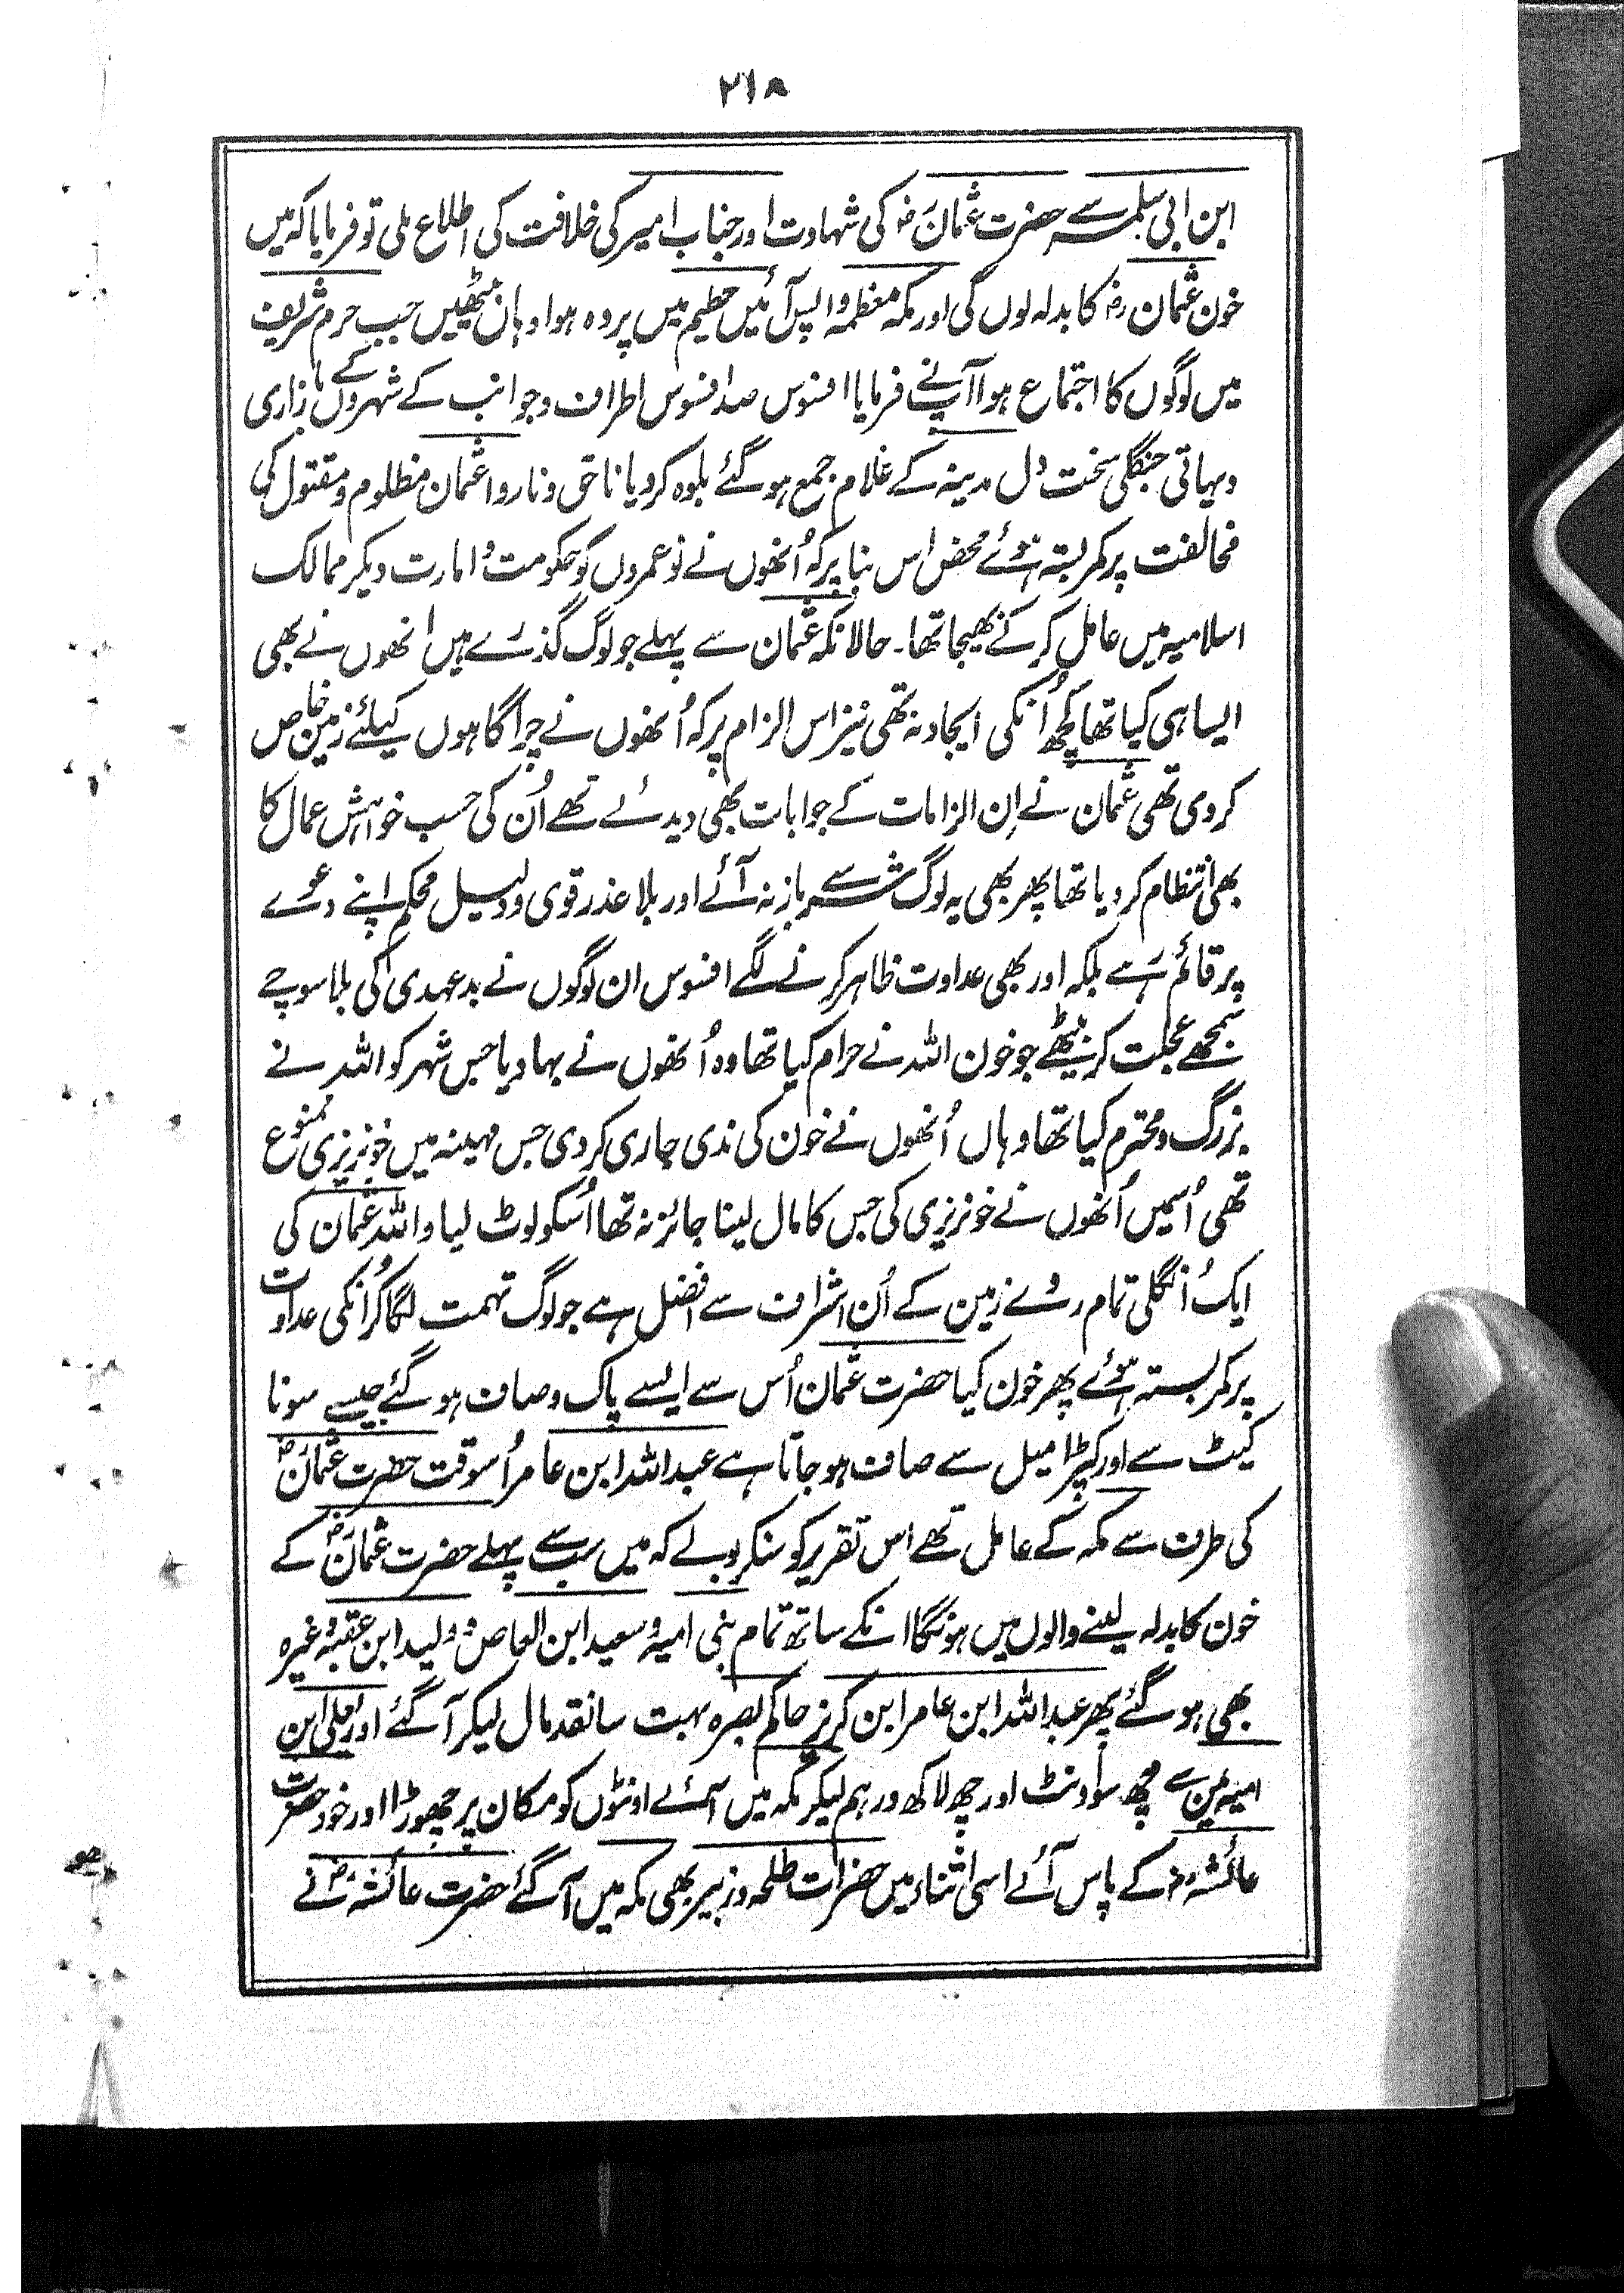 ۲۱۸
ابن ابی سلمہ سے حضرت عثمانؓ کی شہادت اور جناب امیر کی خلافت کی اطلاع ملی تو فرمایا کہ میں
خون عثمان رضؓ کا بدلہ لوں گی اور مکہ معظمہ واپس آئیں حطیم میں پردہ ہوا وہاں بیٹھیں جب حرم شریف
میں لوگوں کا اجتماع ہوا آپنے فرمایا افسوس صد افسوس اطراف وجوانب کے شہروں کے بازاری
دیہاتی جنگلی سخت دل مدینہ کے غلام جمع ہو گئے بلوہ کر دیا ناحق و ناروا عثمان مظلوم و مقتول کی
مخالفت پر کمر بستہ ہوئے محض اس بنا پر کہ اُنھوں نے نو عمروں کو حکومت و امارت دیگر ممالک
اسلامیہ میں عامل کر کے بھیجا تھا۔ حالانکہ عثمان سے پہلے جو لوگ گذرے ہیں اُنھوں نے بھی
ایسا ہی کیا تھا کچھ اُنکی ایجاد نہ تھی نیز اس الزام پر کہ اُنھوں نے چراگاہوں کیلئے زمین خاص
کر دی تھی عثمان نے اِن الزامات کے جوابات بھی دیدئے تھے اُن کی حسب خواہش عمال کا
بھی انتظام کر دیا تھا پھر بھی یہ لوگ شر سے باز نہ آئے اور بلا عذر قوی و دلیل محکم اپنے دعوے
پر قائم رہے بلکہ اور بھی عداوت ظاہر کرنے لگے افسوس ان لوگوں نے بد عہدی کی بلا سوچے
سمجھے عجلت کر بیٹھے جو خون اللہ نے حرام کیا تھا وہ اُنھوں نے بہا دیا جس شہر کو اللہ نے
بزرگ و محترم کیا تھا وہاں اُنھوں نے خون کی ندی جاری کر دی جس مہینہ میں خونریزی ممنوع
تھی اُسمیں اُنھوں نے خونریزی کی جس کا مال لینا جائز نہ تھا اُسکو لوٹ لیا واللہ عثمان کی
ایک اُنگلی تمام روئے زمین کے اُن اشراف سے افضل ہے جو لوگ تہمت لگا کر اُنکی عداوت
پر کمر بستہ ہوئے پھر خون کیا حضرت عثمان اُس سے ایسے پاک و صاف ہو گئے جیسے سونا
کیٹ سے اور کپڑا میل سے صاف ہو جاتا ہے عبداللہ ابن عامر اُسوقت حضرت عثمانؓ
کی طرف سے مکہ کے عامل تھے اس تقریر کو سنکر بولے کہ میں سب سے پہلے حضرت عثمانؓ کے
خون کا بدلہ لینے والوں میں ہونگا انکے ساتھ تمام بنی امیہ و سعید ابن العاص و ولید ابن عقبہ وغیرہ
بھی ہو گئے پھر عبداللہ ابن عامر ابن کریز حاکم بصرہ بہت سا نقد مال لیکر آ گئے اور یعلی ابن
امیہ یمن سے چھ سو اونٹ اور چھ لاکھ درہم لیکر مکہ میں آئے اونٹوں کو مکان پر چھوڑا اور خود حضرت
عائشہؓ کے پاس آئے اسی اثناء میں حضرات طلحہ و زبیر بھی مکہ میں آ گئے حضرت عائشہؓ نے